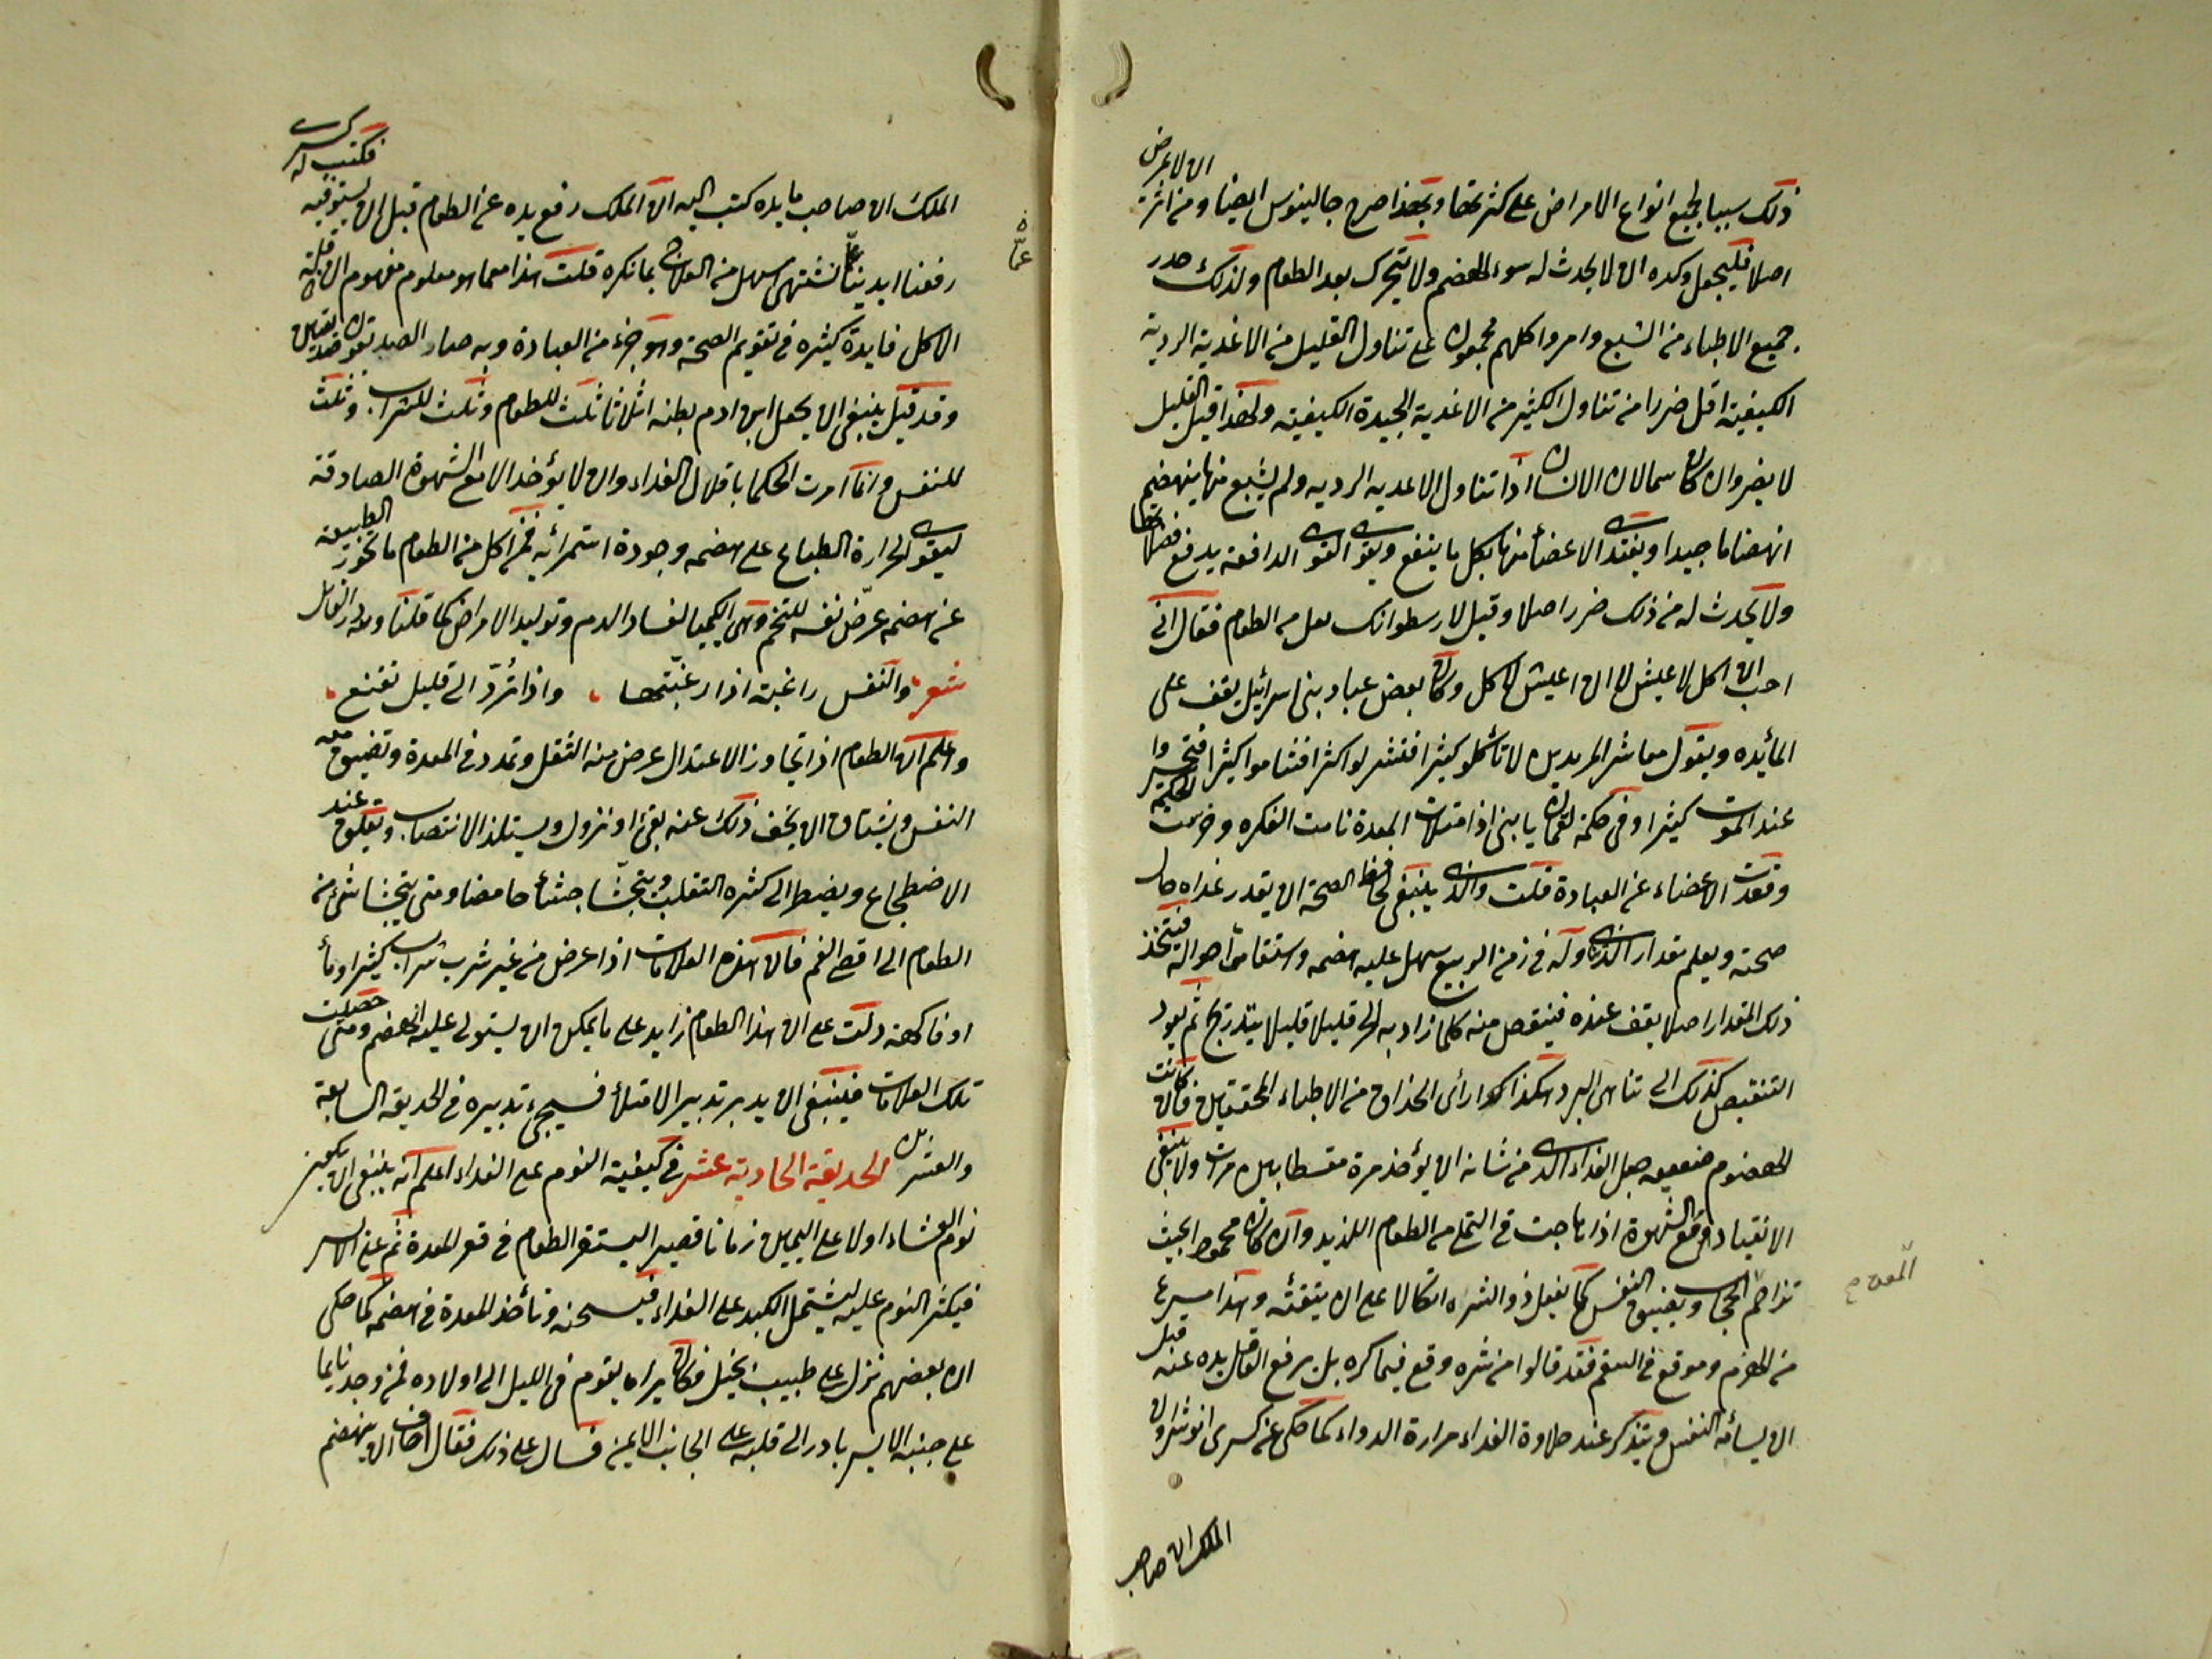 ذلك سببا لجميع انواع الامراض على كثرتها وبهذا صرح جالينوس ايضا ومن اثر ان لا يمرض
اصلا فليجعل وكده ان لا يحدث له سوء الهضم ولا يتحرك بعد الطعام ولذلك حذر
جميع الاطباء من الشبع وامروا كلهم مجمعون على تناول القليل من الاغدية الردية
الكيفية اقل ضررا من تناول الكثير من الاغدية الجيدة الكيفية ولهذا قيل القليل
لا يضر وان كان سما لان الانسان اذا تناول الاغديه الرديه ولم يشبع منها ينهضم
انهضاما جيدا ويغتدى الاعضأ منها بكل ما ينفع ويقوى القوى الدافعة يدفع فضلاتها
ولا يحدث له من ذلك ضرر اصلا وقيل لارسطو انك تقل من الطعام فقال انى
احب ان اكل لاعيش لا ان اعيش لاكل وكان بعض عباد بنى اسرائيل يقف على
المأيده ويقول معاشر المريدين لا تأكلو كثيرا فتشربوا كثرا فتناموا كثيرا فتخسروا
عند الموت كثيرا وفى حكمة لقمان يا بنى اذا امتلات المعدة نامت الفكره وخرست الحكمة
وقعدت الاعضاء عن العبادة قلت والذى ينبغى لحافظ الصحة ان يقدر غداه حال
صحته ويعلم مقدار الذى تناوله فى زمن الربيع سهل عليه هضمه واستقامة احواله فيتخذ
ذلك المقدار اصلا يقف عنده فينقص منه كلما زاد به الحر قليلا قليلا بتدريج ثم يعود
التنقيص كذلك الى تناهى البرد هكذا هو رأى الحذاق من الاطباء المحققين فان كانت
الهضوم ضعيفه جعل الغداء الذى من شانه ان يؤخذ مرة مقسطا بين مرات ولا ينبغى
الانقياد مع الشهوة اذا هاجت فى التملى من الطعام اللذيد وان كان محمودا بحيث
تزاحم الحجاب ويضيق النفس كما يفعل ذو الشره اتكالا على ان يتقيئه وهذا مسرع
من الهرم وموقع فى السقم فقد قالوا من شره وقع فيما كره بل يرفع العاقل يده عنه قبل
ان يسأمه النفس ويتذكر عند حلاوة الغداء مرارة الدواء كما حكى عن كسرى انوشروان
الملك ان صاحب
الملك ان صاحب مايده كتب اليه ان الملك رفع يده عن الطعام قبل ان يستوفيه فكتب له كسرى
رفعنا ايدينا عما نشتهى اسهل من العلاج بما نكره قلت هذا مما هو معلوم مفهوم ان قلة
الاكل فايدة كثيره فى تقويم الصحة وهو جزء من العبادة وبه صار الصيد
وقد قيل ينبغى ان يجعل ابن ادم بطنه اثلاثا ثلث للطعام وثلث للشراب وثلث
للنفس وانما امرت الحكما باقلال الغداء وان لا يؤخذ الا مع الشهوة الصادقة
ليقوى الحرارة الطباع على هضمه وجودة استمرائه فمن اكل من الطعام ما تخور الطبيعه
عن هضمه عرّض نفسه للتخم وهى الكيميا لفساد الدم وتوليد الامراض كما قلنا ولله در القايل
شعر والنفس راغبة اذا رغبتها واذا تُردّ الى قليل تقنع
واعلم ان الطعام اذا تجاوز الاعتدال عرض منه الثقل وتمدد فى المعدة وتضيق منه
النفس ويشتاق ان يخف ذلك عنه بقئ او نزول ويستلذ الانتصاب ويقلق عند
الاضطجاع ويضطر الى كثره التقلب ويتجشّا جشأ حامضا ومتى يتجشا شئ من
الطعام الى اقصى الفم فان هذه العلامات اذا عرض من غير شرب شراب كثير او مأ
او فاكهة دلت على ان هذا الطعام زايد على ما يمكن ان يستولى عليه الهضم ومتى حصلت
تلك العلامات فينبغى ان يدبر تدبير الامتلأ فسيجئ تدبيره فى الحديقة السابعة
والعشرين الحديقة الحادية عشر فى كيفية النوم على الغداء اعلم انه ينبغى ان يكون
نوم العشاء اولا على اليمين زمانا قصيرا ليستقر الطعام فى قعر المعدة ثم على الايسر
فيكثر النوم عليه ليشتمل الكبد على الغداء فيسخنه وتأخذ المعدة فى هضمه كما حكى
ان بعضهم نزل على طبيب بخيل فكان يراه يقوم فى الليل الى اولاده فمن وجد نايما
على جنبه الايسر بادر الى قلبه على الجانب الايمن فسال على ذلك فقال اخاف ان ينهضم